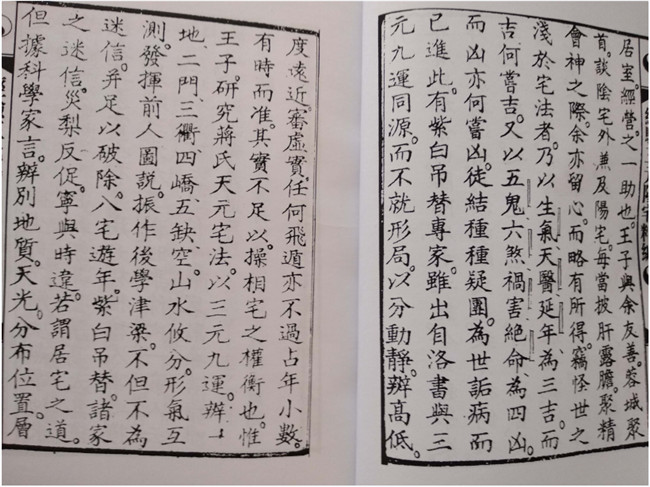 居室。經營之一助也。王子與余友善。蓉城聚
首。談陰宅外兼及陽宅。每當披肝露膽。聚精
會神之際。余亦留心。而略有所得。竊怪世之
淺於宅法者。乃以生氣天醫延年為三吉。而
吉何嘗吉。又以五鬼六煞禍害絕命為四凶。
而凶亦何嘗凶。徒結種種疑團。為世詬病而
已。進此。有紫白吊替專家。雖出自洛書。與三
元九運同源。而不就形局。以分動靜。辨高低。
度遠近。審虛實。任何飛遁。亦不過占年小數。
有時而准。其實不足以操相宅之權衡也。惟
王子。研究蔣氏天元宅法。以三元九運。辨
地。二門三衢四嶠五缺空。山水攸分。形氣互
測。發揮前人圖說。振作後學津梁。不但不為
迷信。并足以破除。八宅遊年。紫白吊替。諸家
之迷信。災梨反促。寧與時違。若謂居宅之道。
但據科學家言。辨別地質。天光。分布位置。層